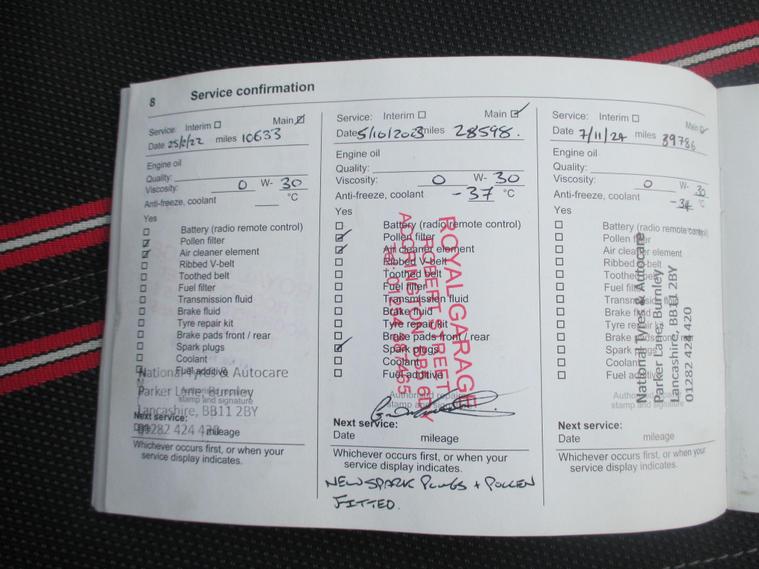 8 Service confirmation
Service: Interim ☐ Main ☑
Date 25/2/22 miles 10633
Engine oil
Quality:
Viscosity: 0 W- 30
Anti-freeze, coolant °C
Yes
☐ Battery (radio remote control)
☑ Pollen filter
☑ Air cleaner element
☐ Ribbed V-belt
☐ Toothed belt
☐ Fuel filter
☐ Transmission fluid
☐ Brake fluid
☐ Tyre repair kit
☐ Brake pads front / rear
☐ Spark plugs
☐ Coolant
☐ Fuel additive
National Tyres & Autocare
Parker Lane, Burnley
Lancashire, BB11 2BY
01282 424 420
Authorised repairer
stamp and signature
Next service:
Date mileage
Whichever occurs first, or when your
service display indicates.
Service: Interim ☐ Main ☑
Date 5/10/2023 miles 28598.
Engine oil
Quality:
Viscosity: 0 W- 30
Anti-freeze, coolant -37 °C
Yes
☐ Battery (radio remote control)
☑ Pollen filter
☑ Air cleaner element
☐ Ribbed V-belt
☐ Toothed belt
☐ Fuel filter
☐ Transmission fluid
☐ Brake fluid
☐ Tyre repair kit
☐ Brake pads front / rear
☑ Spark plugs
☐ Coolant
☐ Fuel additive
ROYAL GARAGE
ROBERT STREET
ACCRINGTON BB5
Authorised repairer
stamp and signature
Next service:
Date mileage
Whichever occurs first, or when your
service display indicates.
NEW SPARK PLUGS + POLLEN
FITTED.
Service: Interim ☐ Main ☑
Date 7/11/24 miles 39786
Engine oil
Quality:
Viscosity: 0 W- 30
Anti-freeze, coolant -34 °C
Yes
☐ Battery (radio remote control)
☐ Pollen filter
☐ Air cleaner element
☐ Ribbed V-belt
☐ Toothed belt
☐ Fuel filter
☐ Transmission fluid
☐ Brake fluid
☐ Tyre repair kit
☐ Brake pads front / rear
☐ Spark plugs
☐ Coolant
☐ Fuel additive
National Tyres & Autocare
Parker Lane, Burnley
Lancashire, BB11 2BY
01282 424 420
Authorised repairer
stamp and signature
Next service:
Date mileage
Whichever occurs first, or when your
service display indicates.